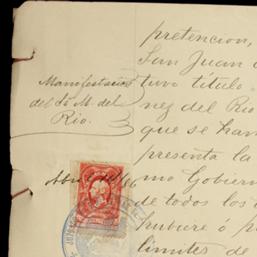 pretencion,
San Juan
Manifestacion
tuvo título
del Sr M. del
nez del Rio
Rio.
que se han
presenta la
Abril 16
mo Gobier
de todos los
hubiere ó p
limites de